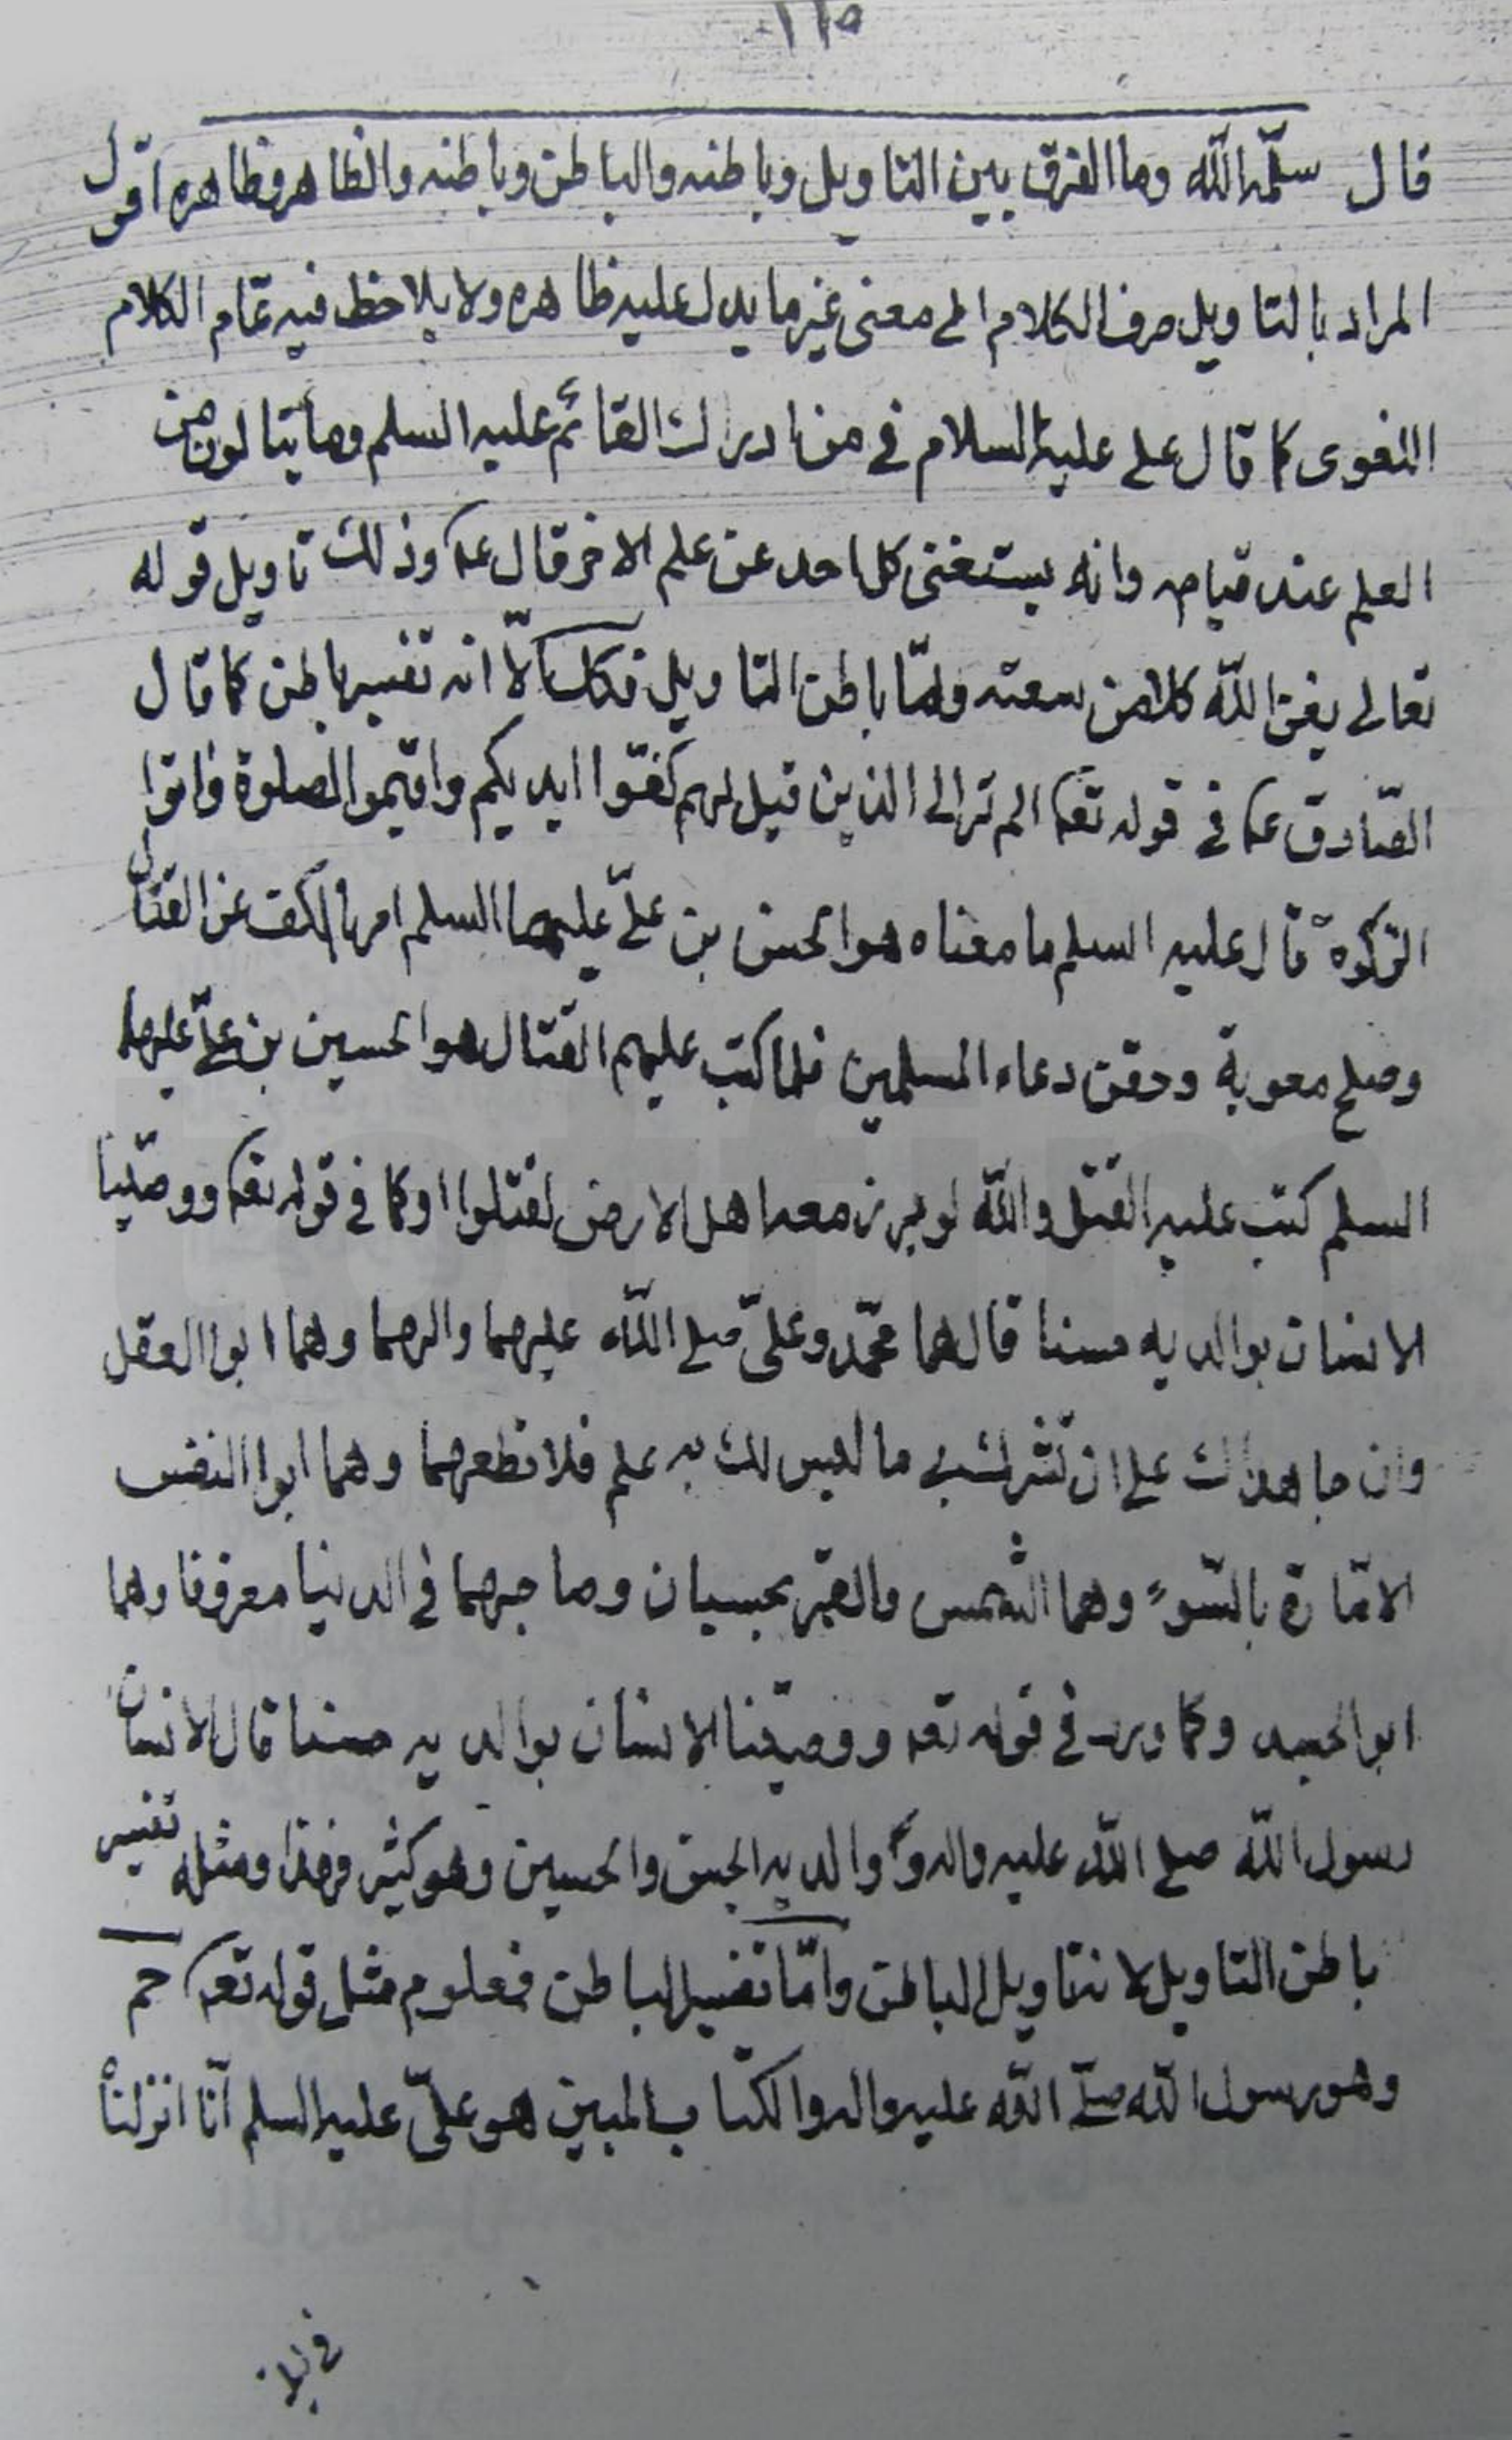 ١١٥
قال سلّمه اللّه وما الفرق بين التاويل وباطنه والباطن وباطنه والظاهر وظاهره اقول
المراد بالتاويل صرف الكلام الى معنى غير ما يدل عليه ظاهره ولا يلاحظ فيه تمام الكلام
اللغوى كما قال على عليه السلام فى من ادرك القائم عليه السلم وما ينالون من
العلم عند قيامه وانه يستغنى كل احد عن علم الاخر قال ع وذلك تاويل قوله
تعالى يغن اللّه كلا من سعته وامّا باطن التاويل فكل الّا انه تفسير باطن كما قال
الصّادق ع فى قوله تع الم تر الى الذين قيل لهم كفّوا ايديكم واقيموا الصلوة واتوا
الزكوة قال عليه السلم ما معناه هو الحسن بن علىّ عليهما السلم امر بالكف عن القتال
وصلح معوية وحقن دماء المسلمين فلما كتب عليهم القتال هو الحسين بن علىّ عليهما
السلم كتب عليه القتل واللّه لو برز معه اهل الارض لقتلوا او كما فى قوله تع ووصّينا
الانسان بوالديه حسنا قال هما محمّد وعلىّ صلى اللّه عليهما والهما وهما ابوا العقل
وان جاهداك على ان تشرك بى ما ليس لك به علم فلا تطعهما وهما ابوا النفس
الامّارة بالسّوء وهما الشمس والقمر بحسبان وصاحبهما فى الدنيا معروفا وهما
ابوا الجسد وكما ورد فى قوله تع ووصيّنا الانسان بوالديه حسنا قال الانسان
رسول اللّه صلى اللّه عليه واله و والديه الحسن والحسين وهو كثير فهذا ومثله تفسير
باطن التاويل لانه تاويل الباطن وامّا تفسير الباطن فمعلوم مثل قوله تع حم
وهو رسول اللّه صلّى اللّه عليه واله والكتاب المبين هو علىّ عليه السلم انّا انزلناه
فى ليلة